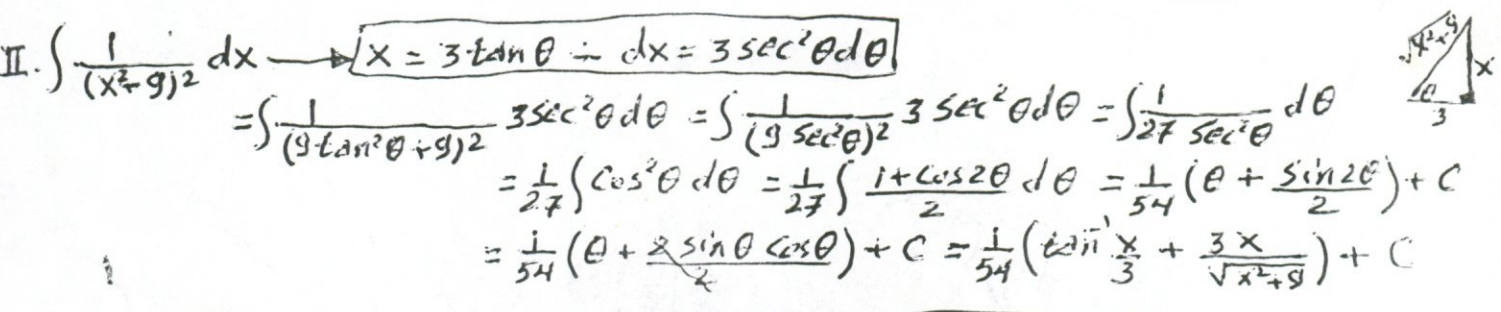 II. ∫ 1/(x²+9)² dx → x = 3 tan θ ∴ dx = 3 sec²θ dθ
√x²+9 x θ 3
= ∫ 1/(9 tan²θ + 9)² 3 sec²θ dθ = ∫ 1/(9 sec²θ)² 3 sec²θ dθ = ∫ 1/(27 sec²θ) dθ
= 1/27 ∫ cos²θ dθ = 1/27 ∫ (1 + cos 2θ)/2 dθ = 1/54 (θ + sin 2θ/2) + C
= 1/54 (θ + 2 sin θ cos θ/2) + C = 1/54 (tan⁻¹ x/3 + 3x/√x²+9) + C